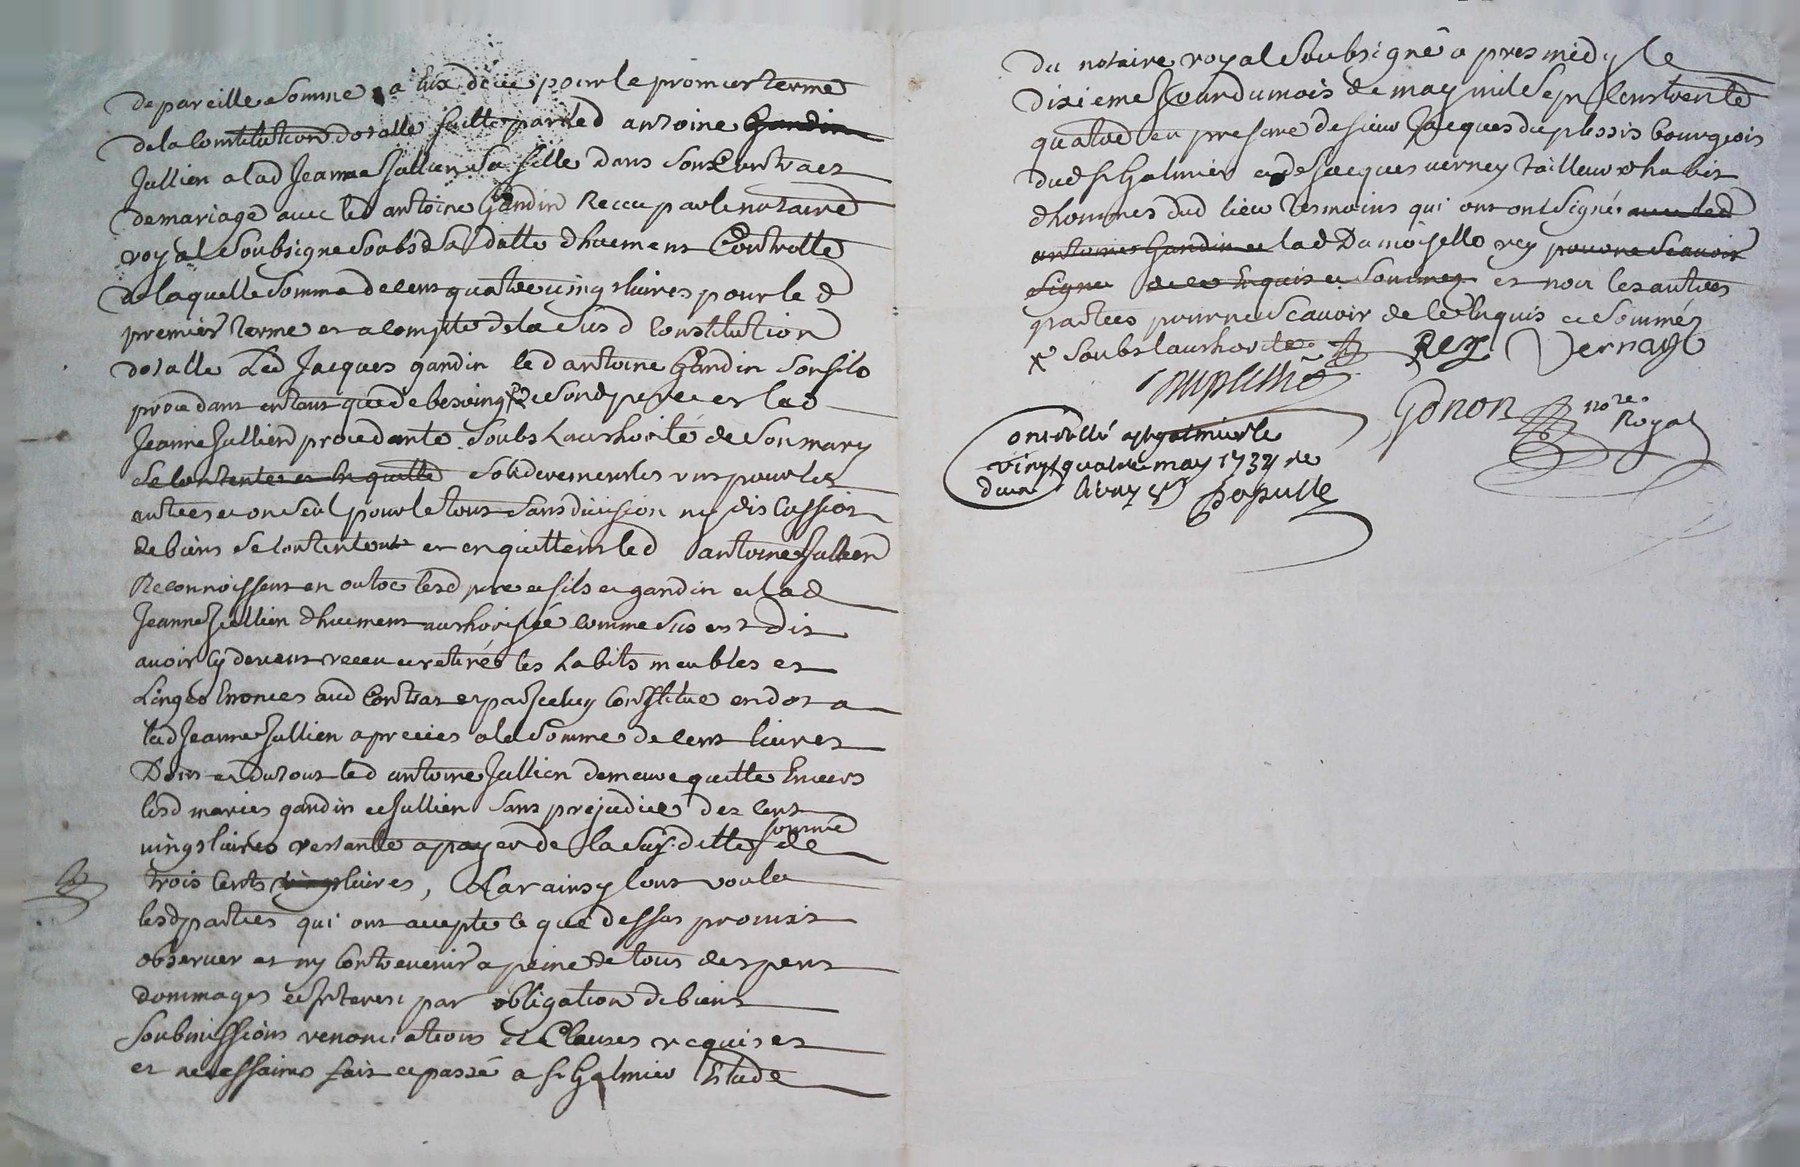 de pareille somme a lux deüe pour le premier terme
de la Constitution dotalle faitte par led antoine Gandin
Jullien a lad Jeanne Jullien Sa fille dans Son Contract
de mariage avec led antoine Gandin Receu par le notaire
royal Soubsigne Soubs Sa datte dhuement Controllé
de laquelle Somme de cent quatre vingt livres pour le d
premier terme et a compte de la Sus d Constitution
dotalle Led Jacques gandin led antoine Gandin Son fils
procedant en tant que de besoing de Sond pere et lad
Jeanne Jullien procedante Soubs Lauthorité de Son mary
Se Contentes et en quitte Solidairement les uns pour les
autres et un Seul pour le tout Sans division ny discussion
de biens Se Contentent et en quittent led antoine Jullien
Reconnoissent en outre lesd pere et fils et gandin et lad
Jeanne Jullien dhuement authorisée comme Sus est dit
avoir cy devant receu et retiré les habits meubles et
Linges Enonces aud Contrat et par Iceluy Constitue en dot a
lad Jeanne Jullien apreciés a la Somme de cent livres
Dont et du tout led antoine Jullien demeure quitte Envers
lesd mariés gandin et Jullien Sans prejudice des cent
vingt livres restante a payer de la Susditte somme de
trois Cents vingt livres, Car ainsy lont voulu
lesd parties qui ont accepte ce que dessus promis
observer et ny Contrevenir a peine de tous despens
dommages et Interest par obligation de biens
Soubmissions renonciations et Clauses requises
et necessaires fait et passé a St Galmier Etude
du notaire royal Soubsigné apres midy le
dixieme Jour du mois de may mil Sept Cent trente
quatre en presence de Sieur Jacques duplessis bourgeois
dud St Galmier et de Jacques verney tailleur d habit
dhommes dud lieu tesmoins qui ont ont Signé avec led
antoine Gandin et lad Damoiselle rey pour ne Scavoir
Signer de ce Enquis et Sommes et non les autres
parties pour ne Scavoir de ce Enquis et Sommés
x Soubs lauthorite Rey Vernay
Duplessis
Gonon nore Royal
Controllé a St galmier le
vingt quatre may 1734 Re
douze livres ChapuSSe